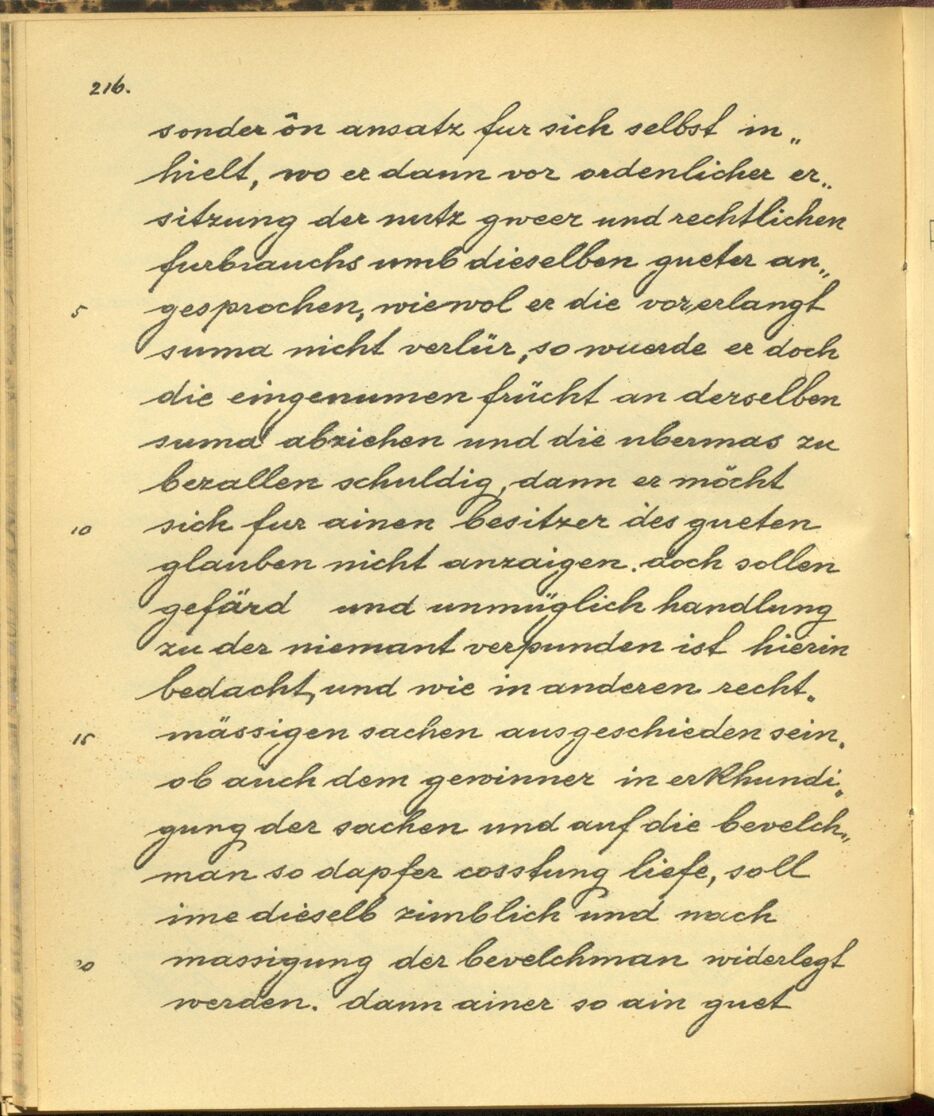 216.
sonder ôn ansatz fur sich selbst in„
hielt, wo er dann vor ordenlicher er„
sitzung der nutz gweer und rechtlichen
furbrauchs umb dieselben gueter an„
5 gesprochen, wiewol er die vorerlangt
suma nicht verlür, so wuerde er doch
die eingenumen frücht an derselben
suma abziehen und die ubermas zu
bezallen schuldig, dann er möcht
10 sich fur ainen besitzer des gueten
glauben nicht anzaigen. doch sollen
gefärd und unmüglich handlung
zu der niemant verpunden ist hierin
bedacht, und wie in anderen recht„
15 mässigen sachen ausgeschieden sein.
ob auch dem gewinner in erkhundi„
gung der sachen und auf die bevelch„
man so dapfer cosstung liefe, soll
ime dieselb zimblich und nach
20 massigung der bevelchman widerlegt
werden. dann ainer so ain guet